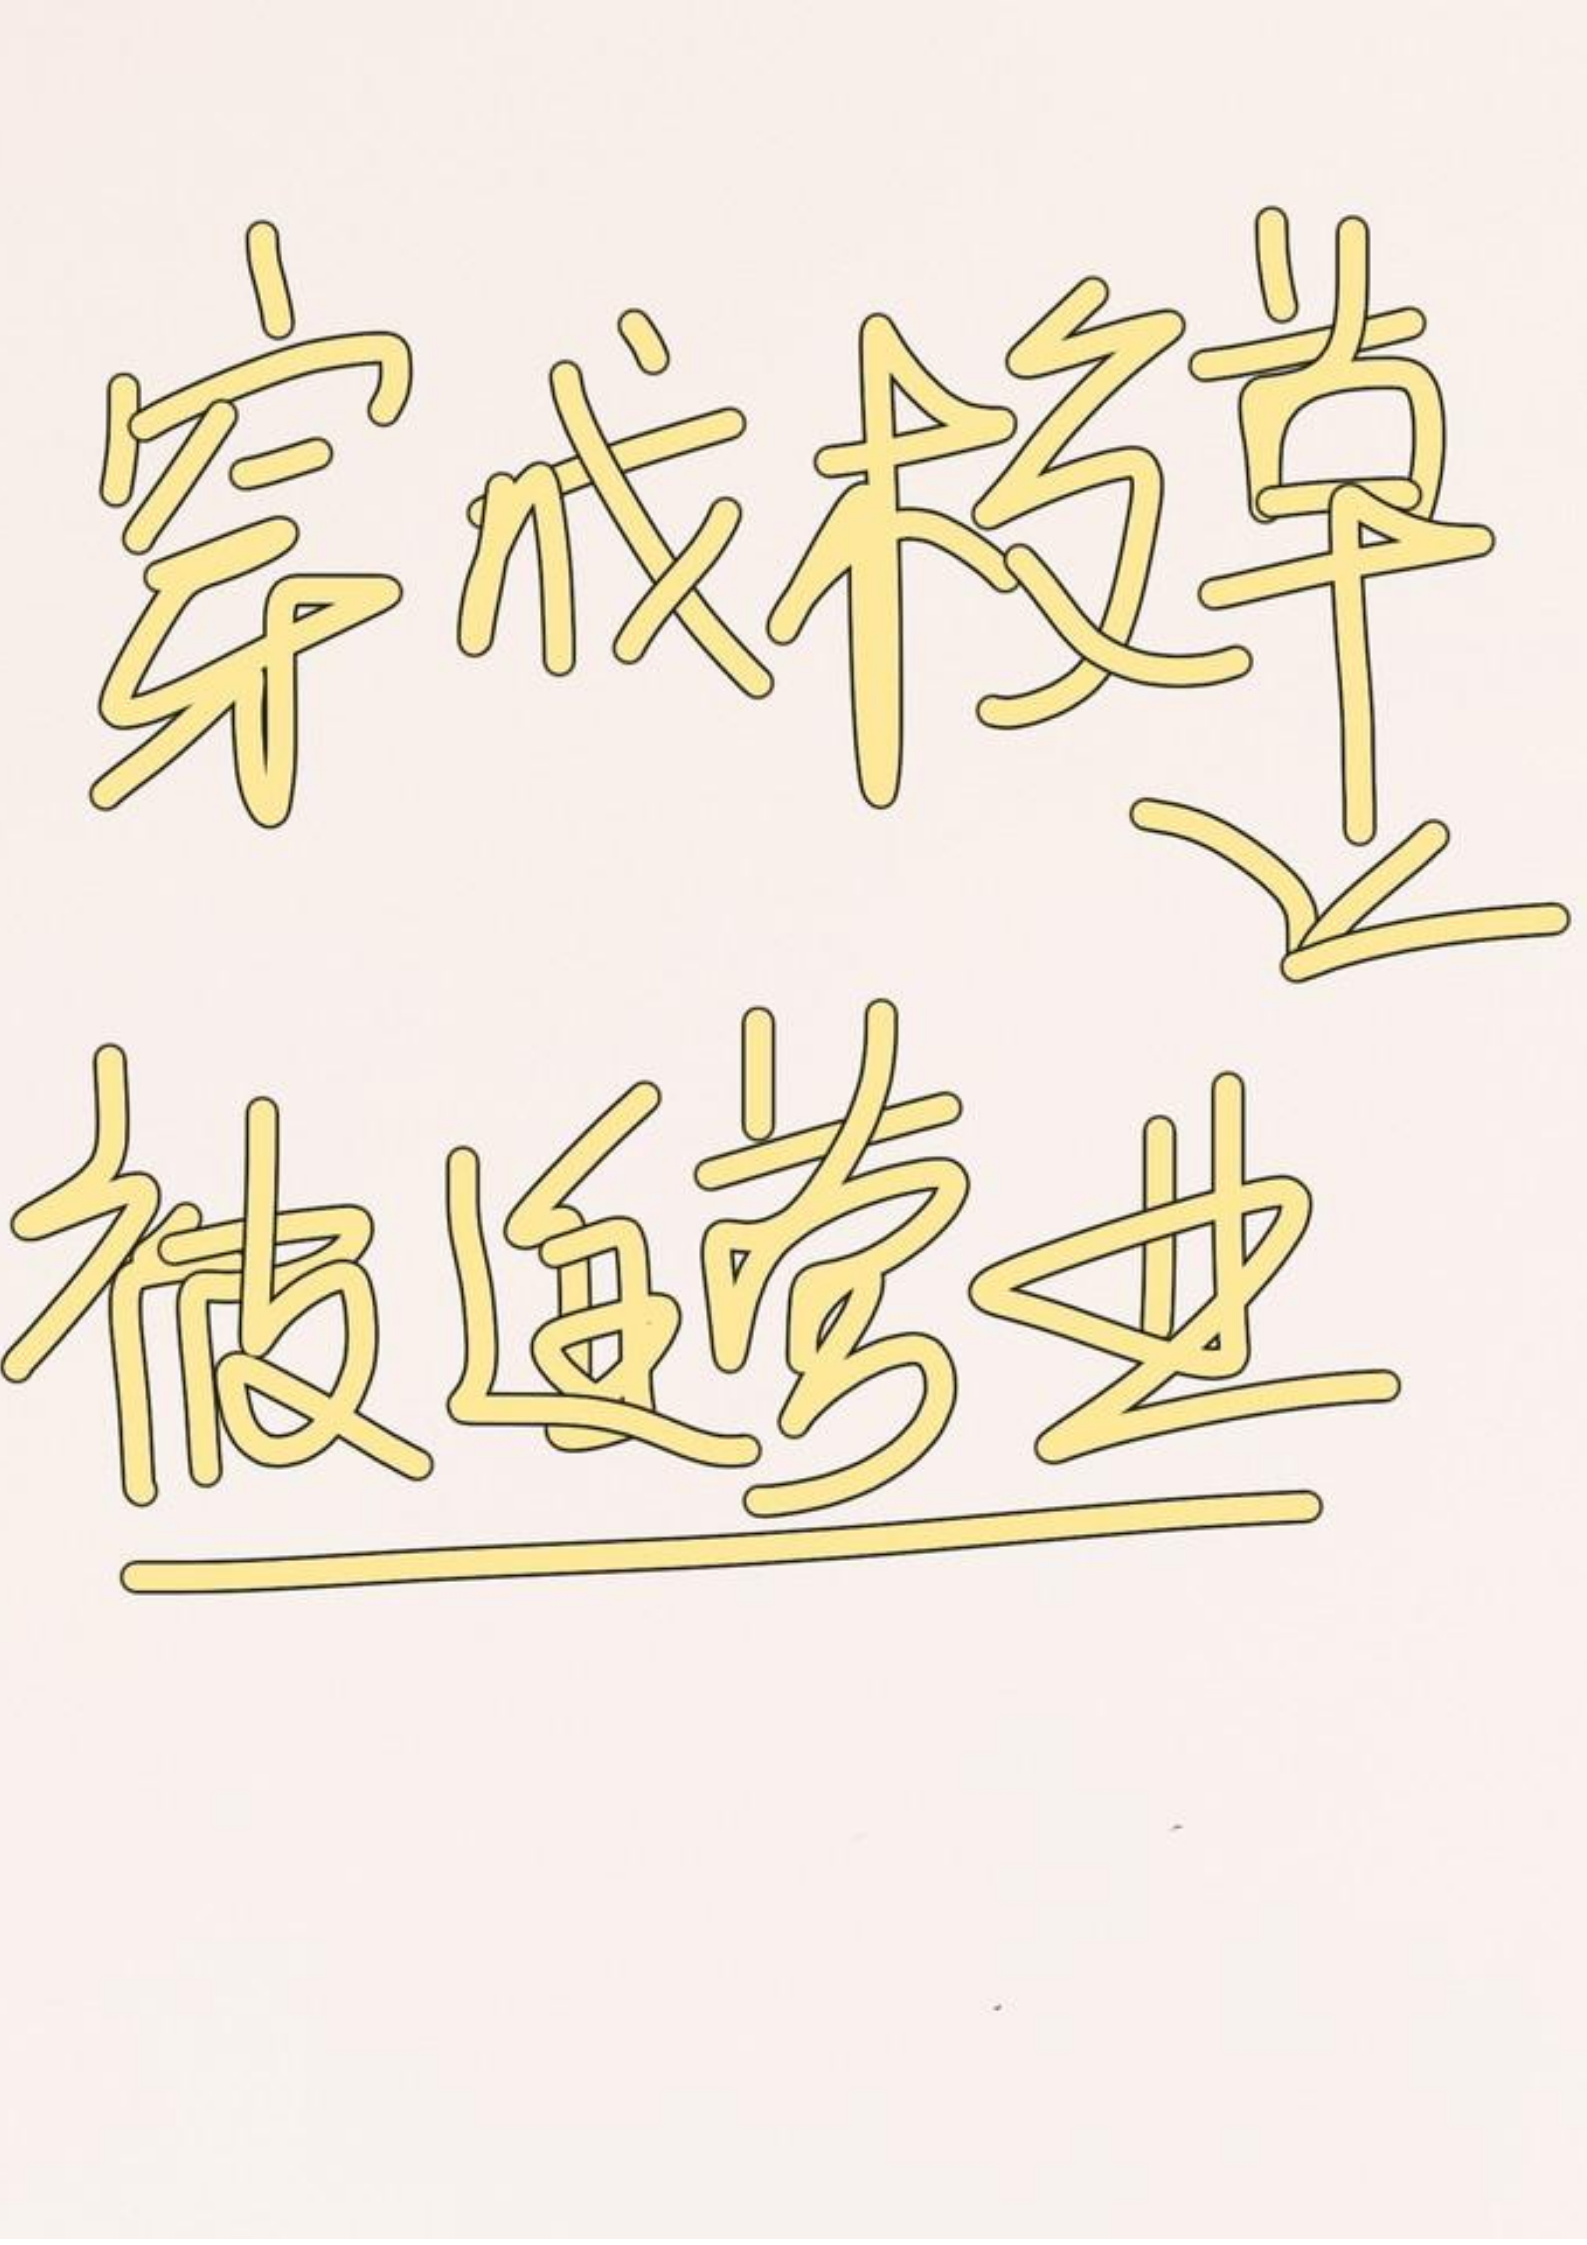 穿成校草之
被迫营业